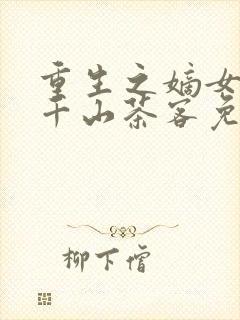 重生之嫡女
千山茶客免
柳下僧